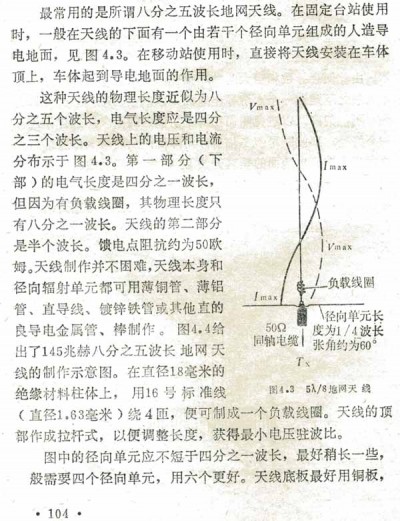 最常用的是所谓八分之五波长地网天线。在固定台站使用
时，一般在天线的下面有一个由若干个径向单元组成的人造导
电地面，见图4.3。在移动站使用时，直接将天线安装在车体
顶上，车体起到导电地面的作用。
这种天线的物理长度近似为八
分之五个波长，电气长度应是四分
之三个波长。天线上的电压和电流
分布示于图4.3。第一部分（下
部）的电气长度是四分之一波长，
但因为有负载线圈，其物理长度只
有八分之一波长。天线的第二部分
是半个波长。馈电点阻抗约为50欧
姆。天线制作并不困难，天线本身和
径向辐射单元都可用薄铜管、薄铝
管、直导线、镀锌铁管或其他直的
良导电金属管、棒制作。图4.4给
出了145兆赫八分之五波长地网天
线的制作示意图。在直径18毫米的
绝缘材料柱体上，用16号标准线
（直径1.63毫米）绕4匝，便可制成一个负载线圈。天线的顶
部作成拉杆式，以便调整长度，获得最小电压驻波比。
图中的径向单元应不短于四分之一波长，最好稍长一些，
般需要四个径向单元，用六个更好。天线底板最好用铜板，
Vmax
Imax
Vmax
负载线圈
Imax
径向单元长
度为1/4波长
张角约为60°
50Ω
同轴电缆
Tx
图4.3 5λ/8地网天线
·104·